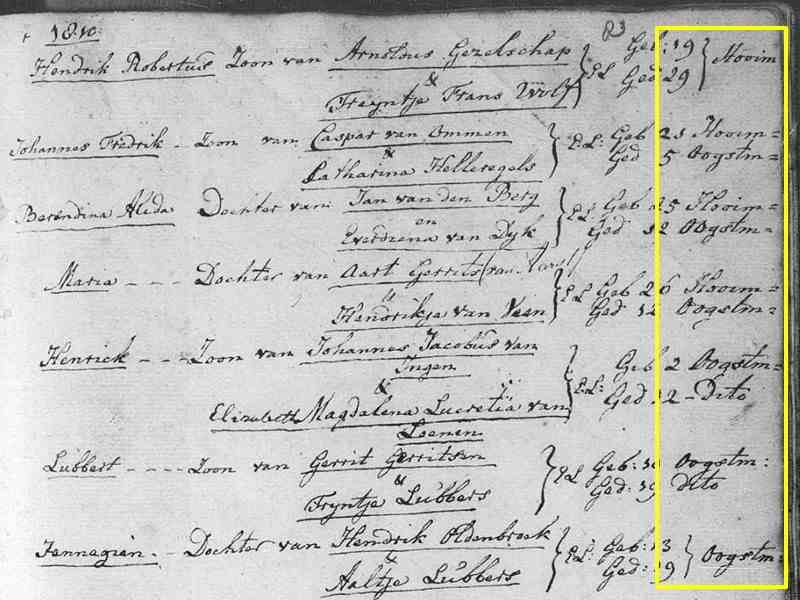 1810.
83
Hendrik Robertus Zoon van Arnoldus Gezelschap
&
Treyntje Frans Wolf
E.L. Geb: 19
Ged 29
Hooim
Johannes Fredrik - Zoon van Caspar van Ommen
&
Catharina Hellregels
E.L: Geb 23 Hooim=
Ged 5 Oogstm=
Berendina Alida Dochter van Jan van den Berg
en
Everdiena van Dyk
E.L: Geb 25 Hooim=
Ged 12 Oogstm=
Maria - - - Dochter van Aart Gerrits
"
Hendrikje van Veen
E.L Geb 26 Hooim=
Ged 12 Oogstm=
Henrick - - Zoon van Johannes Jacobus van
Ingen
&
Elizabeth Magdalena Lucretia van
Loenen
E.L: Geb 2 Oogstm=
Ged 12 - Dito
Lubbert - - - - Zoon van Gerrit Gerritsen
&
Tryntje Lubbers
E.L Geb: 10 Oogstm:
Ged: 19 dito
Jannegien. - - Dochter van Hendrik Oldenbroek
&
Aaltje Lubbers
E.L: Geb: 13
Ged: 19
Oogstm: